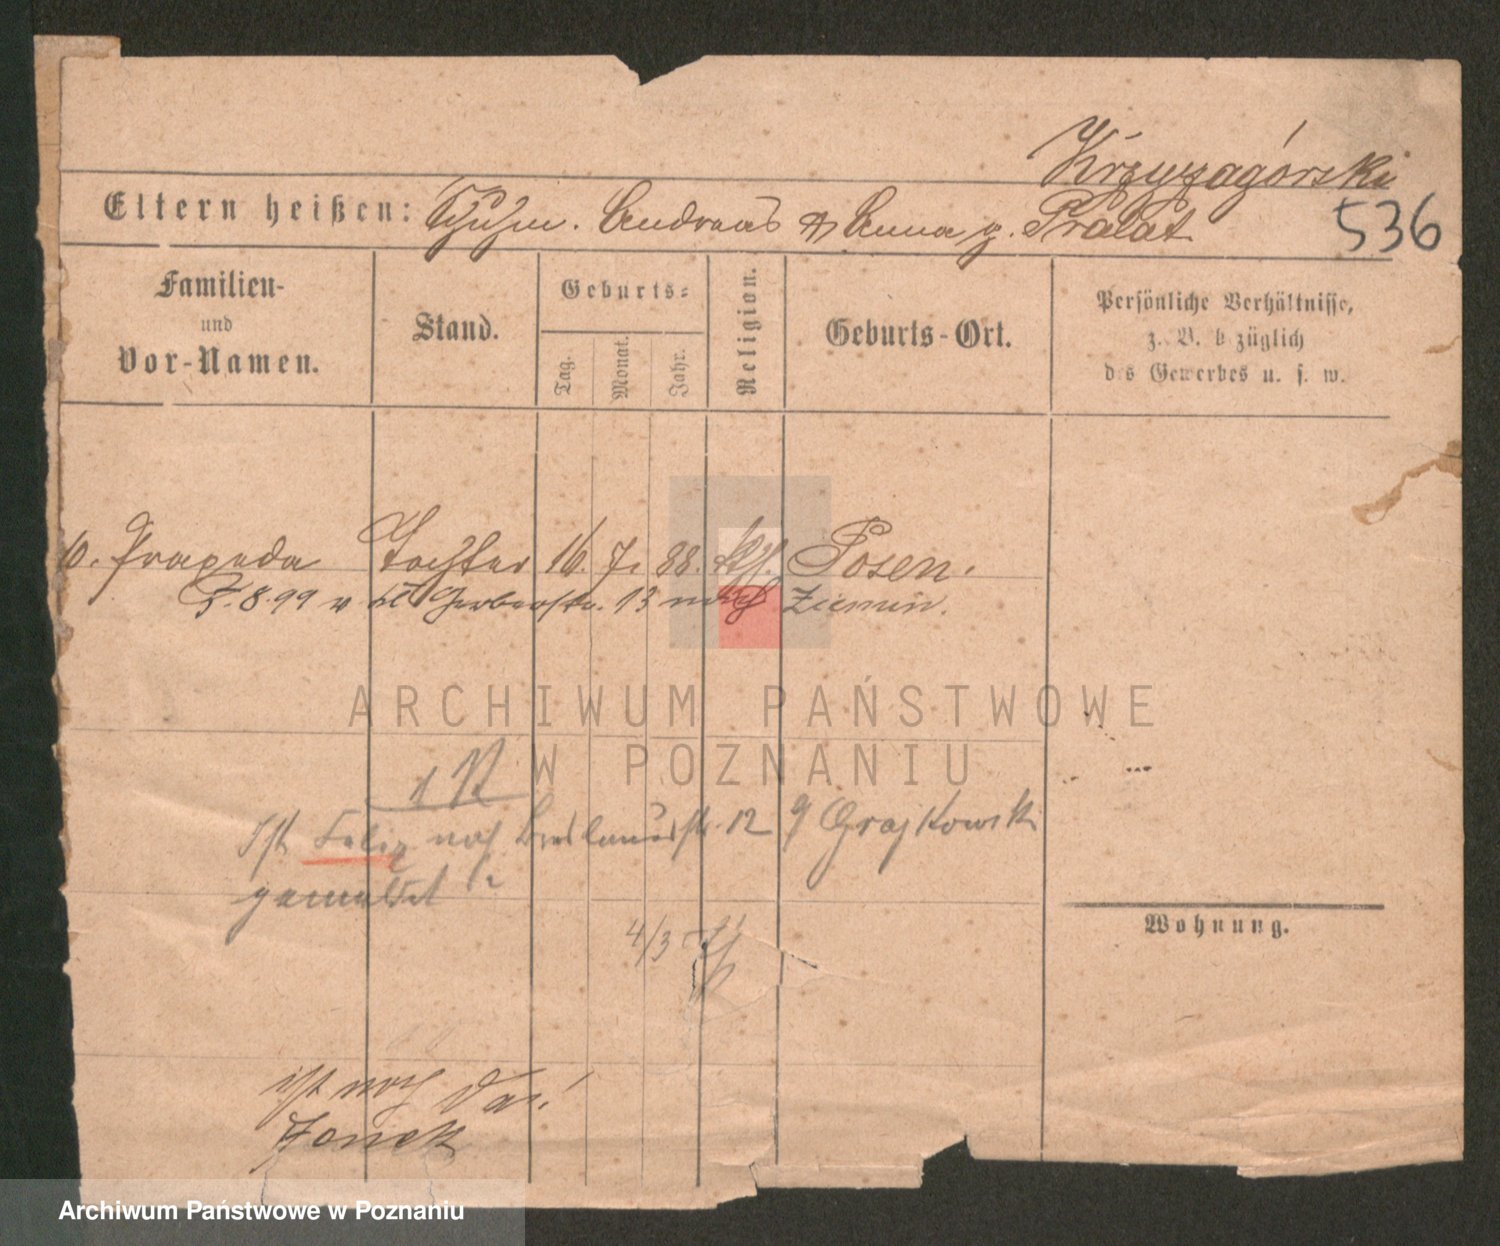 Krzyzagórski
Eltern heißen: Schuhm. Andreas & Anna g. Pralat
536
Familien-
und
Vor-Namen.
Stand.
Geburts-
Tag.
Monat.
Jahr.
Religion.
Geburts-Ort.
Persönliche Verhältnisse,
z. B. bezüglich
des Gewerbes u. s. w.
10. Praxeda Tochter 16. 7. 88. kth. Posen.
7.8.99 v. kl. Gerberstr. 13 nach Ziemin.
ARCHIWUM PAŃSTWOWE
W POZNANIU
Ist Felix noch Breslauerstr. 12 Grajkowski
gemeldet?
4/3
Wohnung.
ist noch da!
Archiwum Państwowe w Poznaniu